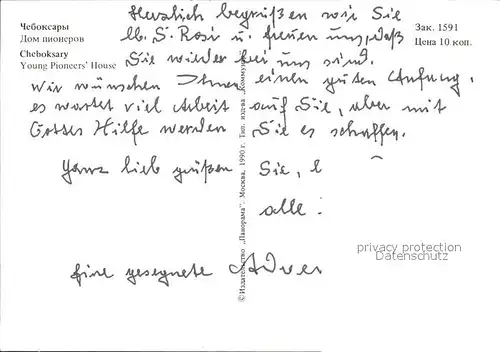 Чебоксары
Дом пионеров
Cheboksary
Young Pioneers' House
Herzlich begrüßen wir Sie
lb. S. Rosi u. freuen uns, daß
Sie wieder bei uns sind.
Wir wünschen Ihnen einen guten Anfang,
es wartet viel Arbeit auf Sie, aber mit
Gottes Hilfe werden Sie es schaffen.
Ganz lieb grüßen Sie,
alle
Eine gesegnete Adven
Зак. 1591
Цена 10 коп.
©Издательство „Панорама“. Москва, 1990 г. Тип. изд-ва
privacy protection
Datenschutz